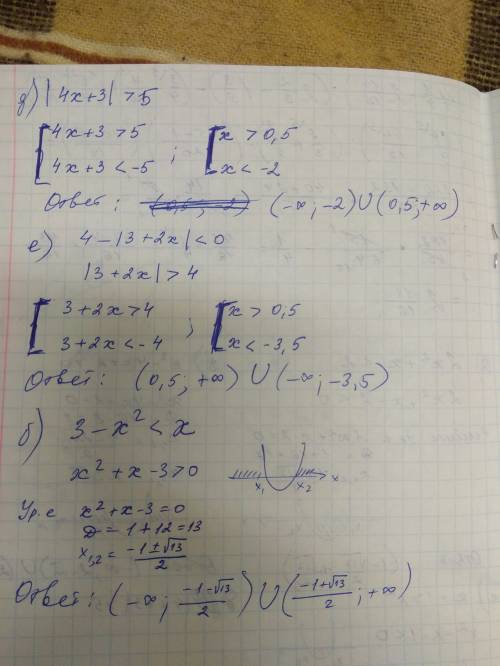 д) |4x+3| > 5
[ 4x+3 > 5 ; [ x > 0,5
4x+3 < -5 x < -2
Ответ: (0,5; -2) (-∞; -2) ∪ (0,5; +∞)
е) 4 - |3+2x| < 0
|3+2x| > 4
[ 3+2x > 4 ; [ x > 0,5
3+2x < -4 x < -3,5
Ответ: (0,5; +∞) ∪ (-∞; -3,5)
б) 3 - x² < x
x² + x - 3 > 0
x₁ x₂ x
Ур.е x² + x - 3 = 0
D = 1 + 12 = 13
x₁,₂ = (-1 ± √13)/2
Ответ: (-∞; (-1-√13)/2) ∪ ((-1+√13)/2; +∞)